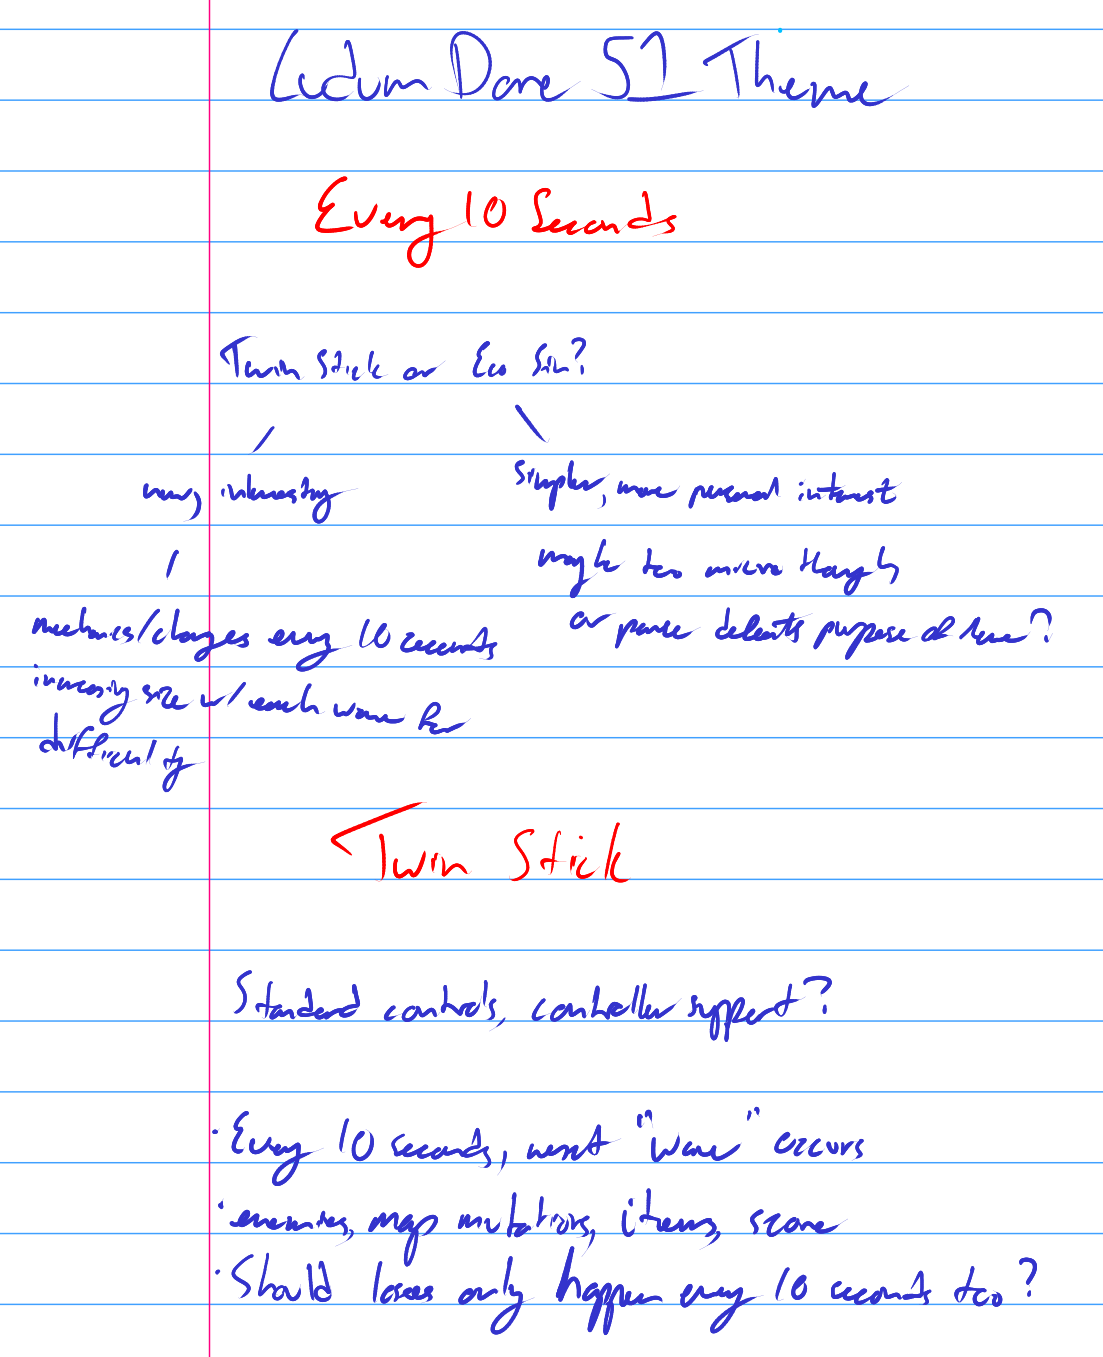 Ludum Dare 51 Theme
Every 10 Seconds
Twin Stick or Eco Sim?
new, interesting
simpler, more personal interest
maybe too micro though
or pause defeats purpose of theme?
mechanics/changes every 10 seconds
increasing size w/ each wave for
difficulty
Twin Stick
Standard controls, controller support?
· Every 10 seconds, next "wave" occurs
· enemies, map mutations, items, score
· Should losses only happen every 10 seconds too?